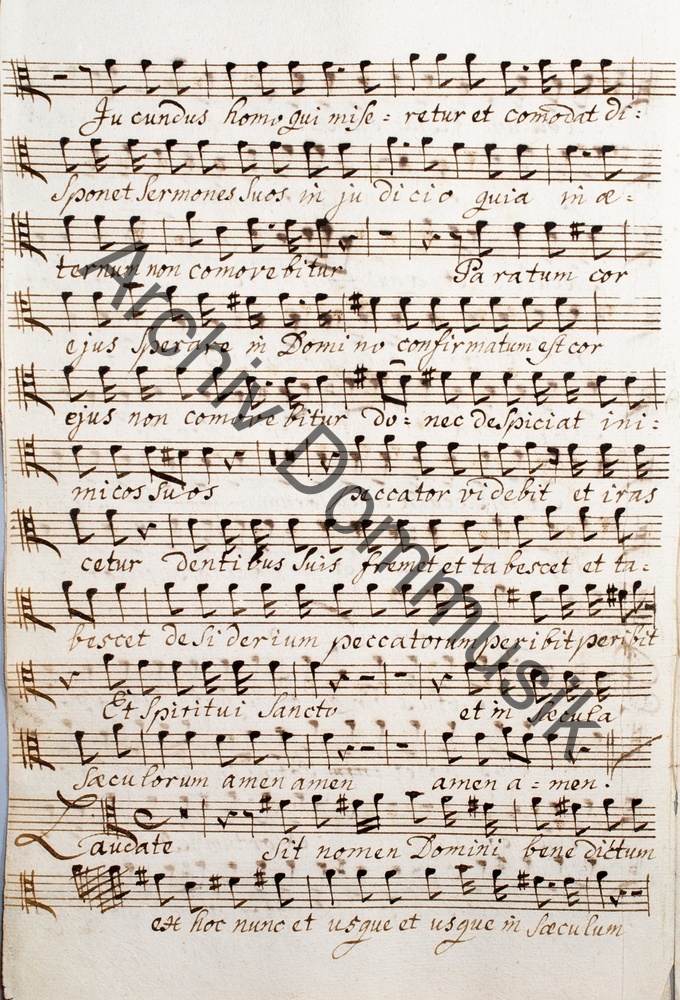 Ju cundus homo qui mise = retur et comodat di =
sponet sermones suos in ju dicio quia in æ =
ternum non comovebitur Paratum cor
ejus sperare in Domino confirmatum est cor
ejus non comovebitur do = nec despiciat ini =
micos suos peccator videbit et iras
cetur dentibus suis fremet et tabescet et ta =
bescet desiderium peccatorum peribit peribit
Et Spiritui Sancto et in sæcula
sæculorum amen amen amen a = men .
Laudate sit nomen Domini benedictum
ex hoc nunc et usque et usque in sæculum
Archiv Dommusik